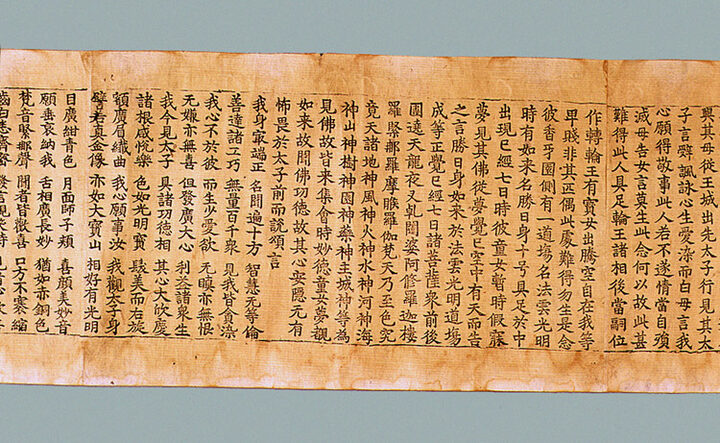 與其母從王城出先太子行見其太
子言辭諷詠心生愛染而白母言我
心願得敬事此人若不遂情當自殞
滅母告女言莫生此念何以故此甚
難得此人具足輪王諸相後當嗣位
作轉輪王有寶女出騰空自在我等
卑賤非其匹偶此處難得勿生是念
彼香牙園側有一道場名法雲光明
時有如來名勝日身十号具足於中
出現已經七日時彼童女暫時假寐
夢見其佛從夢覺已空中有天而告
之言勝日身如來於法雲光明道場
成等正覺已經七日諸菩薩衆前後
圍遶天龍夜叉乹闥婆阿修羅迦樓
羅緊那羅摩睺羅伽梵天乃至色究
竟天諸地神風神火神水神河神海
神山神樹神園神藥神主城神等為
見佛故皆來集會時妙德童女夢覩
如來故聞佛功德故其心安隱元有
怖畏於太子前而說頌言
我身最端正 名聞遍十方 智慧无等倫
善達諸工巧 無量百千衆 見我皆貪染
我心不於彼 而生少愛欲 无瞋亦無恨
无嫌亦無喜 但發廣大心 利益諸衆生
我今見太子 具諸功德相 其心大欣慶
諸根咸悅樂 色如光明寶 髮美而右旋
額廣眉纖曲 我心願事汝 我觀太子身
譬若真金像 亦如大寶山 相好有光明
目廣紺青色 月面師子頰 喜顏美妙音
願垂哀納我 舌相廣長妙 猶如赤銅色
梵音緊那聲 聞者皆歡喜 口方不褰縮
齒白悉齊密 發言現笑時